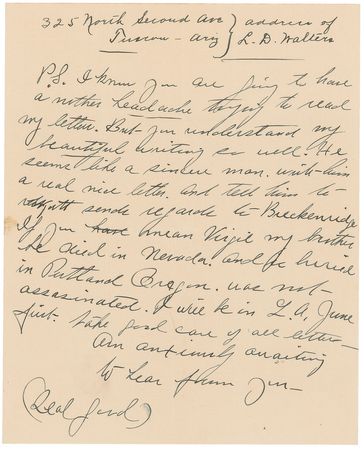 325 North Second Ave } address of
Tuscon - Ariz } L. D. Walters
P.S. I know you are going to have
a nother headache trying to read
my letter. But you understand my
beautiful writing so well. He
seems like a sincere man. with him
a real nice letter. and tell him to
sends regards to Breckenridge
If you have mean Virgil my brother
he died in Nevada. and is buried
in Portland Oregon. was not
assasinated. I will be in L.A. June
first. take good care of all letters
Am anxiously awaiting
to hear from you -
(Real Good)